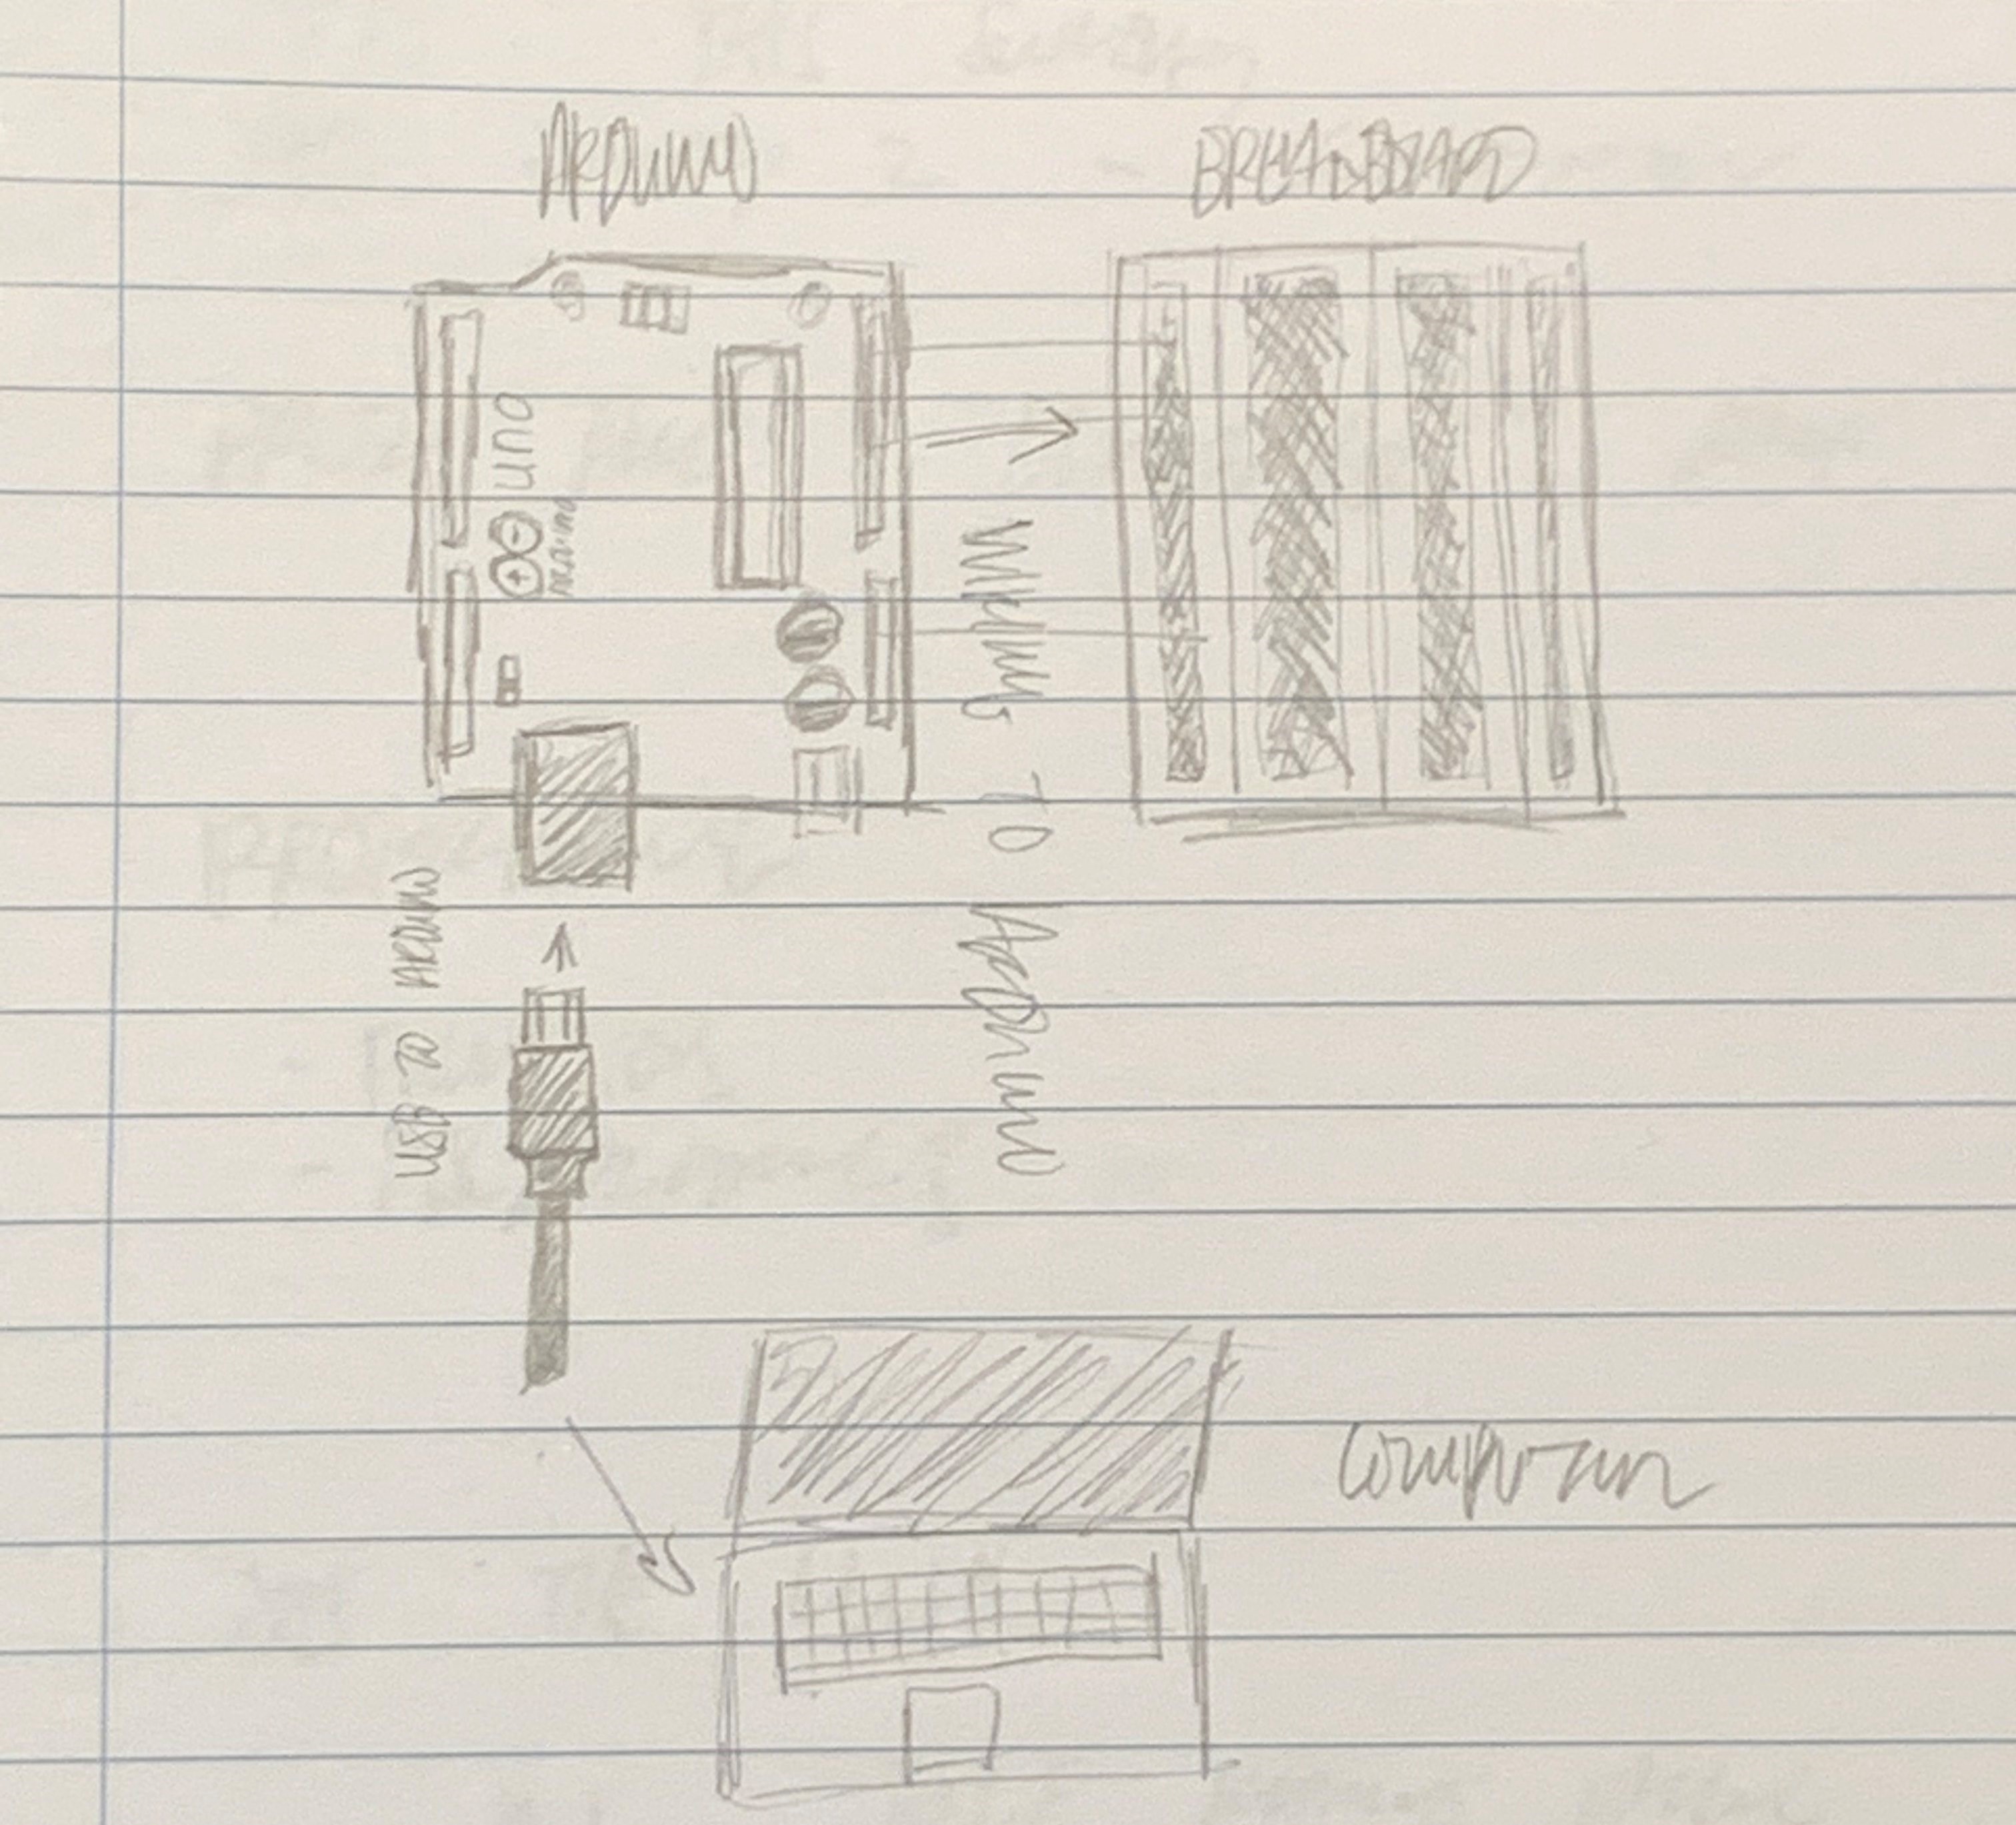 ARDUINO
BREADBOARD
UNO
ARDUINO
WIRING TO ARDUINO
USB TO ARDUINO
COMPUTER